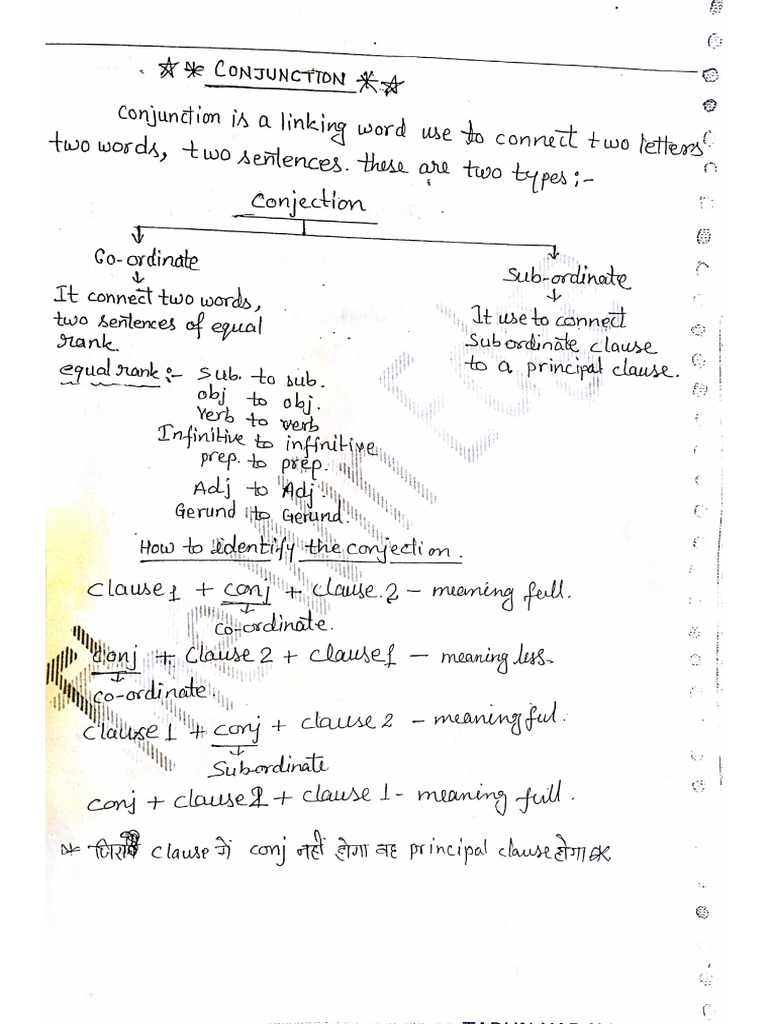 ☆ * CONJUNCTION * ☆
Conjunction is a linking word use to connect two letters
two words, two sentences. these are two types :-
Conjection
Co-ordinate
It connect two words,
two sentences of equal
rank.
Sub-ordinate
It use to connect
Subordinate clause
to a principal clause.
equal rank :- Sub. to sub.
obj to obj.
Verb to verb
Infinitive to infinitive
prep. to prep.
Adj to Adj.
Gerund to Gerund.
How to identify the conjection.
Clause 1 + conj + clause.2 - meaning full.
co-ordinate.
Conj + Clause 2 + clause 1 - meaning less-
co-ordinate.
Clause 1 + conj + clause 2 - meaningful.
Subordinate
conj + clause 2 + clause 1 - meaning full.
* जिस clause में conj नहीं होगा वह principal clause होगा *